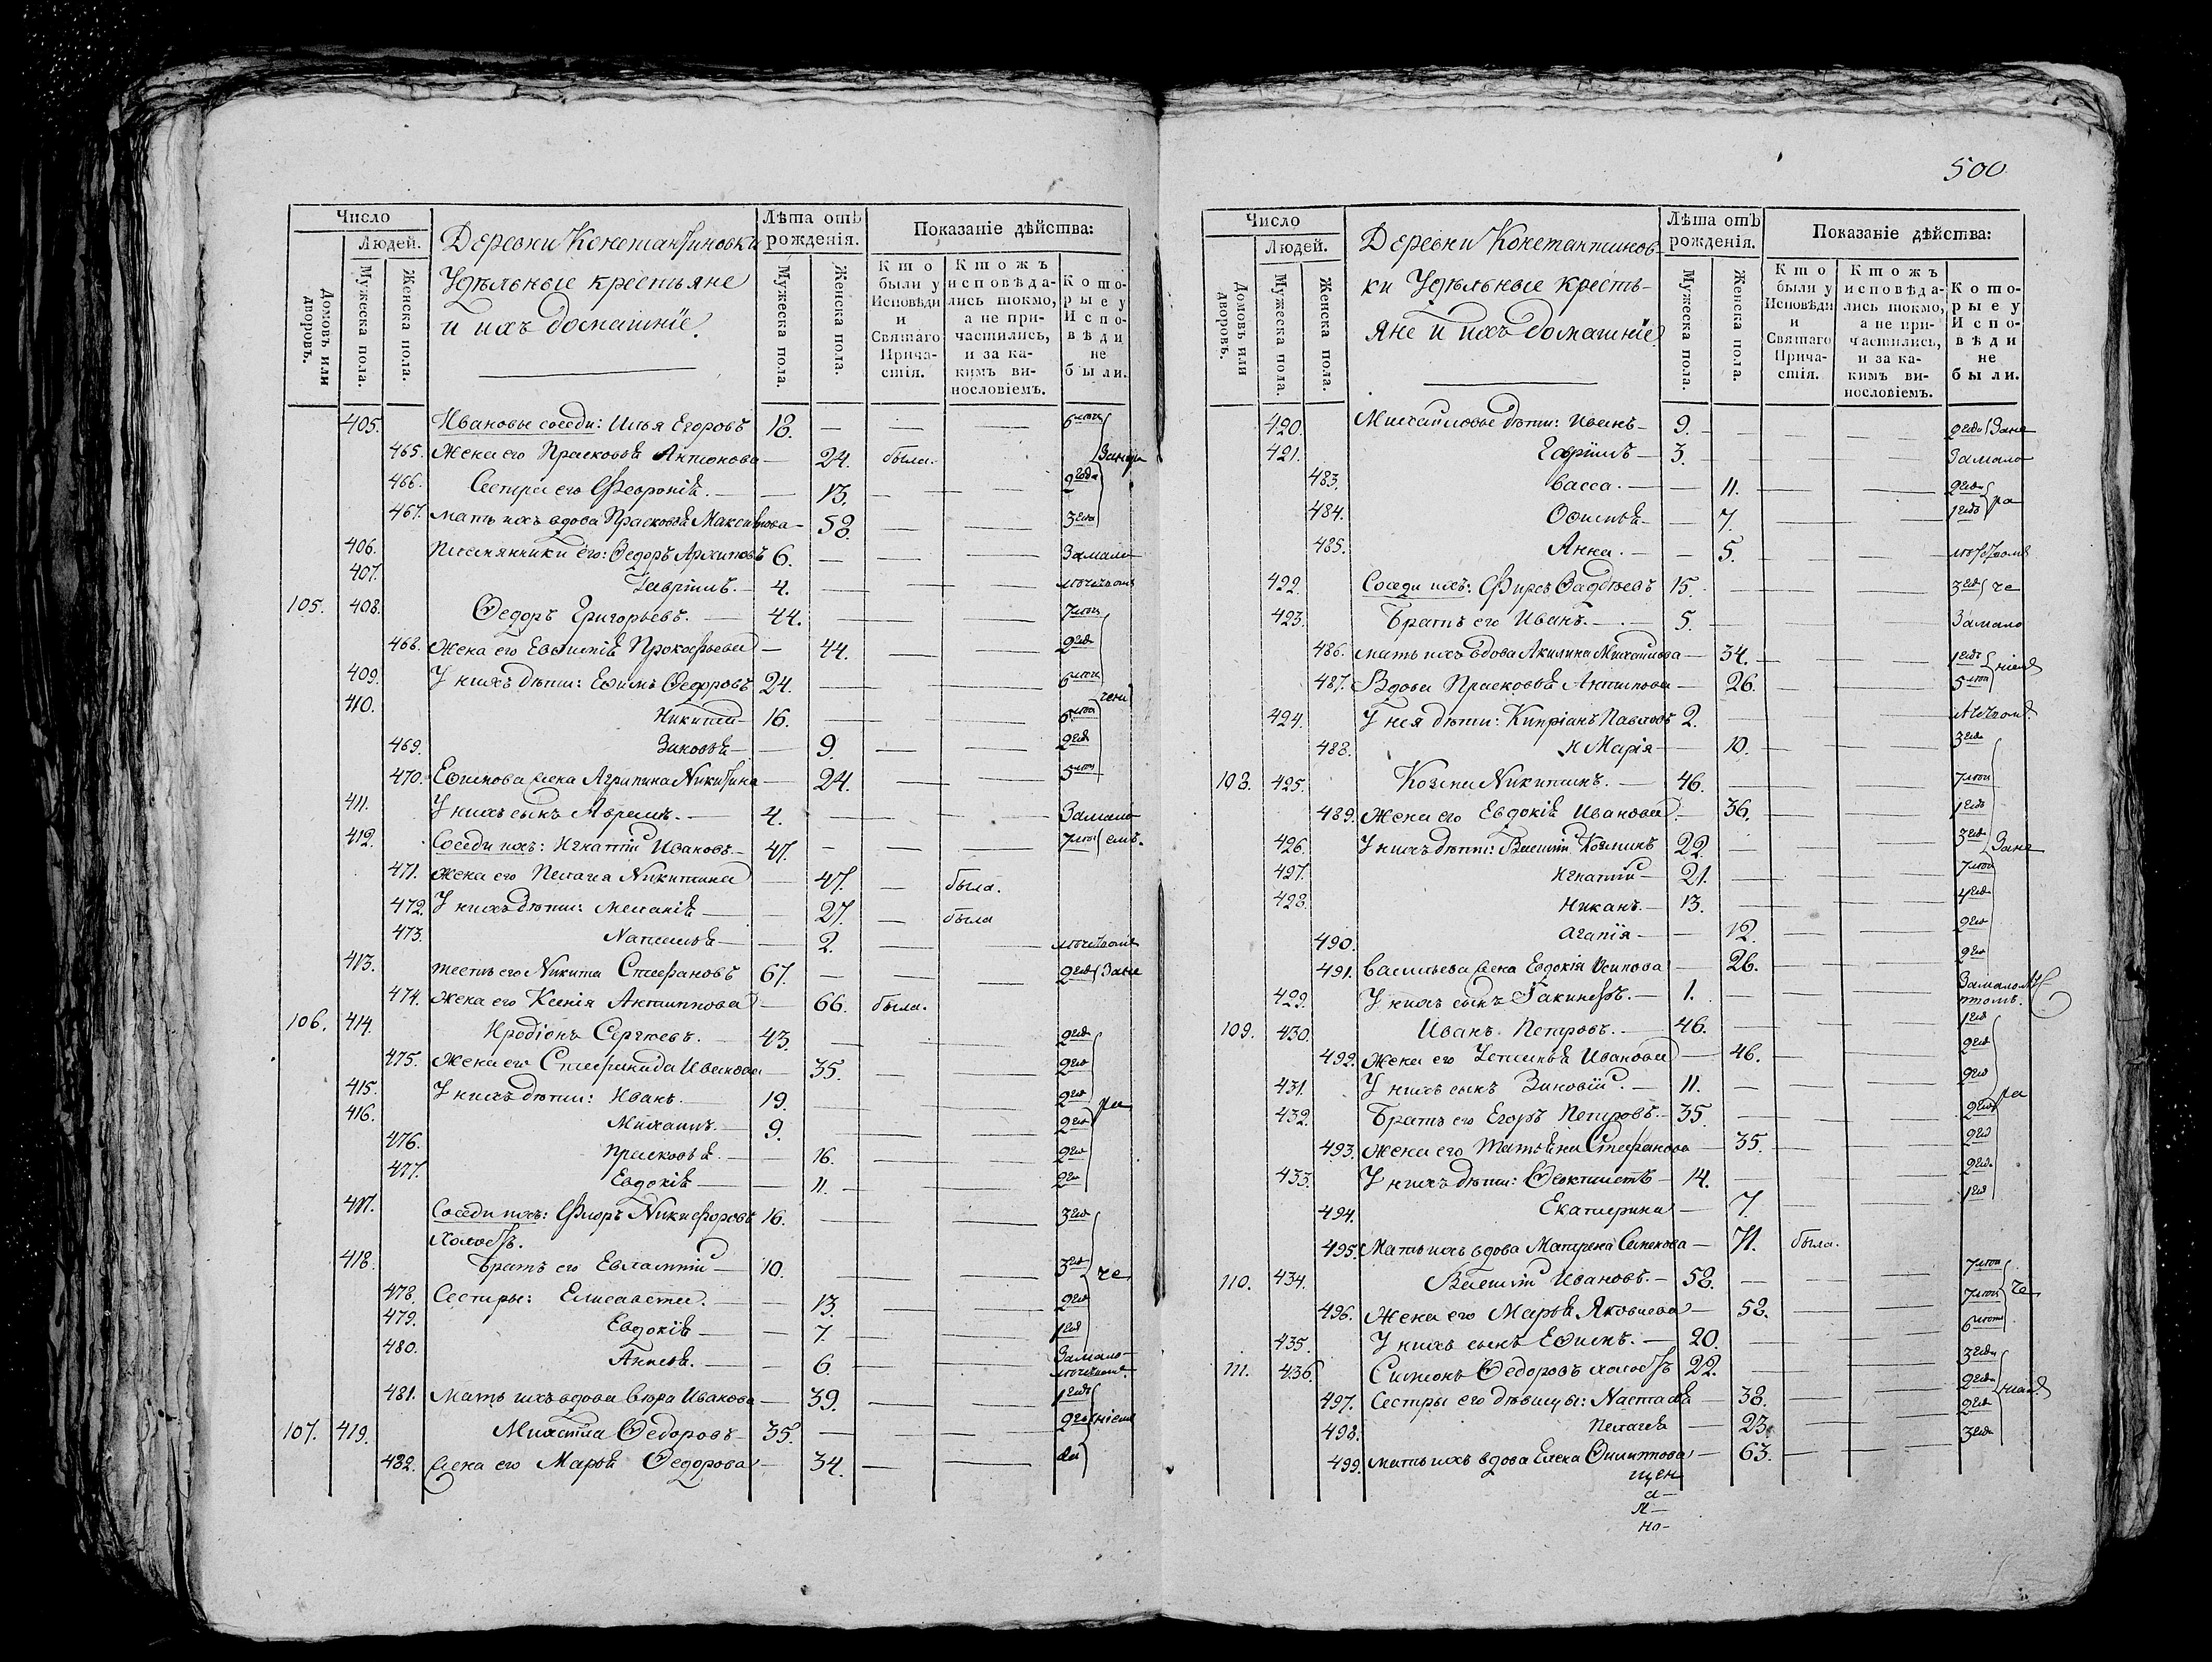 500
Число
Людей.
Домовъ или дворовъ.
Мужеска пола.
Женска пола.
Деревни Константиновки
Удѣльные крестьяне
и ихъ домашнїе
Лѣта отъ рожденїя.
Мужеска пола.
Женска пола.
Показанїе дѣйства:
Кто были у Исповѣди и Святаго Причастїя.
Ктожъ исповѣдались токмо, а не причастились, и за какимъ винословїемъ.
Которые у Исповѣди не были.
405. Ивановы соседи: Илья Егоровъ 18. — — —
465. Жена его Прасковья Антонова — 24. была.
466. Сестра его Феѵронїя. — — 13. — — 2 года
467. мать ихъ вдова Прасковья Максимова — 58. — —
406. Племянники его: Ѳедоръ Архиповъ 6. — — — Замало
407. Гаврїилъ. — 4. — — —
105. 408. Ѳедоръ Григорьевъ. — 44. — — —
468. Жена его Евѳимїя Прокофьева — 44. — —
409. У нихъ дѣти: Ефимъ Ѳедоровъ 24. — — —
410. Никита — 16. — — —
469. Зиновья — — 9. — —
470. Ефимова жена Агрипина Никитина — 24. — —
411. У нихъ сынъ Аврамъ. — 4. — — — Замало
412. Соседи ихъ: Игнатїй Ивановъ. — 47. — — —
471. жена его Пелагея Никитина — 47. — была.
472. У нихъ дѣти: Меланїя — — 27. — была
473. Наталья — — 2. — —
413. тесть его Никита Стефановъ 67. — —
474. жена его Ксенїя Антиппова — 66. была.
106. 414. Иродїонъ Сергѣевъ. — 43. — —
475. Жена его Стефанида Иванова — 35. — —
415. У нихъ дѣти: Иванъ. — 19. — —
416. Михаилъ. — 9. — —
476. Прасковья. — — 16. — —
477. Евдокїя — — 11. — —
417. Соседи ихъ: Флоръ Никифоровъ 16. — — —
холостъ.
418. братъ его Евлампїй — 10. — — —
478. Сестры: Елисавета. — — 13. — —
479. Евдокїя — — 7. — —
480. — — 6. — — Замало
481. Мать ихъ вдова Вѣра Иванова — 39. — —
107. 419. Михаила Ѳедоровъ — 35. — —
482. жена его Марья Ѳедорова — 34. — —
Число
Людей.
Домовъ или дворовъ.
Мужеска пола.
Женска пола.
Деревни Константинов-
ки Удѣльные кресть-
яне и ихъ домашнїе
Лѣта отъ рожденїя.
Мужеска пола.
Женска пола.
Показанїе дѣйства:
Кто были у Исповѣди и Святаго Причастїя.
Ктожъ исповѣдались токмо, а не причастились, и за какимъ винословїемъ.
Которые у Исповѣди не были.
420. Михайловы дѣти: Иванъ — 9. — — —
421. Гаврїилъ — 3. — — — Замало
483. Васса. — — 11. — —
484. Офимья — — 7. — —
485. Анна. — — 5. — —
422. Соседи ихъ: Фирсъ Фадѣевъ 15. — — —
423. Братъ его Иванъ. — 5. — — — Замало
486. мать ихъ вдова Акилина Михайлова — 34. — —
487. Вдова Прасковья Антипова — 26. — —
424. У нея дѣти: Кипрїанъ Павловъ 2. — — —
488. и Марїя — 10. — —
108. 425. Козма Никитинъ. — 46. — — —
489. Жена его Евдокїя Иванова — 36. — —
426. У нихъ дѣти: Василїй Козминъ 22. — — —
427. Игнатїй — 21. — — —
428. Иканъ. — 13. — — —
490. Агапїя — — 12. — —
491. Васильева жена Евдокїя Осипова — 26. — —
429. У нихъ сынъ Гакинфъ. — 1. — — — Замало
109. 430. Иванъ Петровъ. — 46. — —
492. Жена его Устинья Иванова — 46. — —
431. У нихъ сынъ Зиновїй. — 11. — —
432. Братъ его Егоръ Петровъ. — 35. — —
493. Жена его Татьяна Стефанова — 35. — —
433. У нихъ дѣти: Ѳеоктистъ — 14. — —
494. Екатерина — 7. — —
495. Мать ихъ вдова Матрена Семенова — 71. была.
110. 434. Василїй Ивановъ. — 58. — —
496. Жена его Марья Яковлева — 58. — —
435. У нихъ сынъ Ефимъ. — 20. — —
111. 436. Симонъ Ѳедоровъ холостъ 22. — —
497. Сестры его дѣвицы: Настасья — 38. — —
498. Пелагея — 23. — —
499. мать ихъ вдова Елена Филиппова — 63. — —